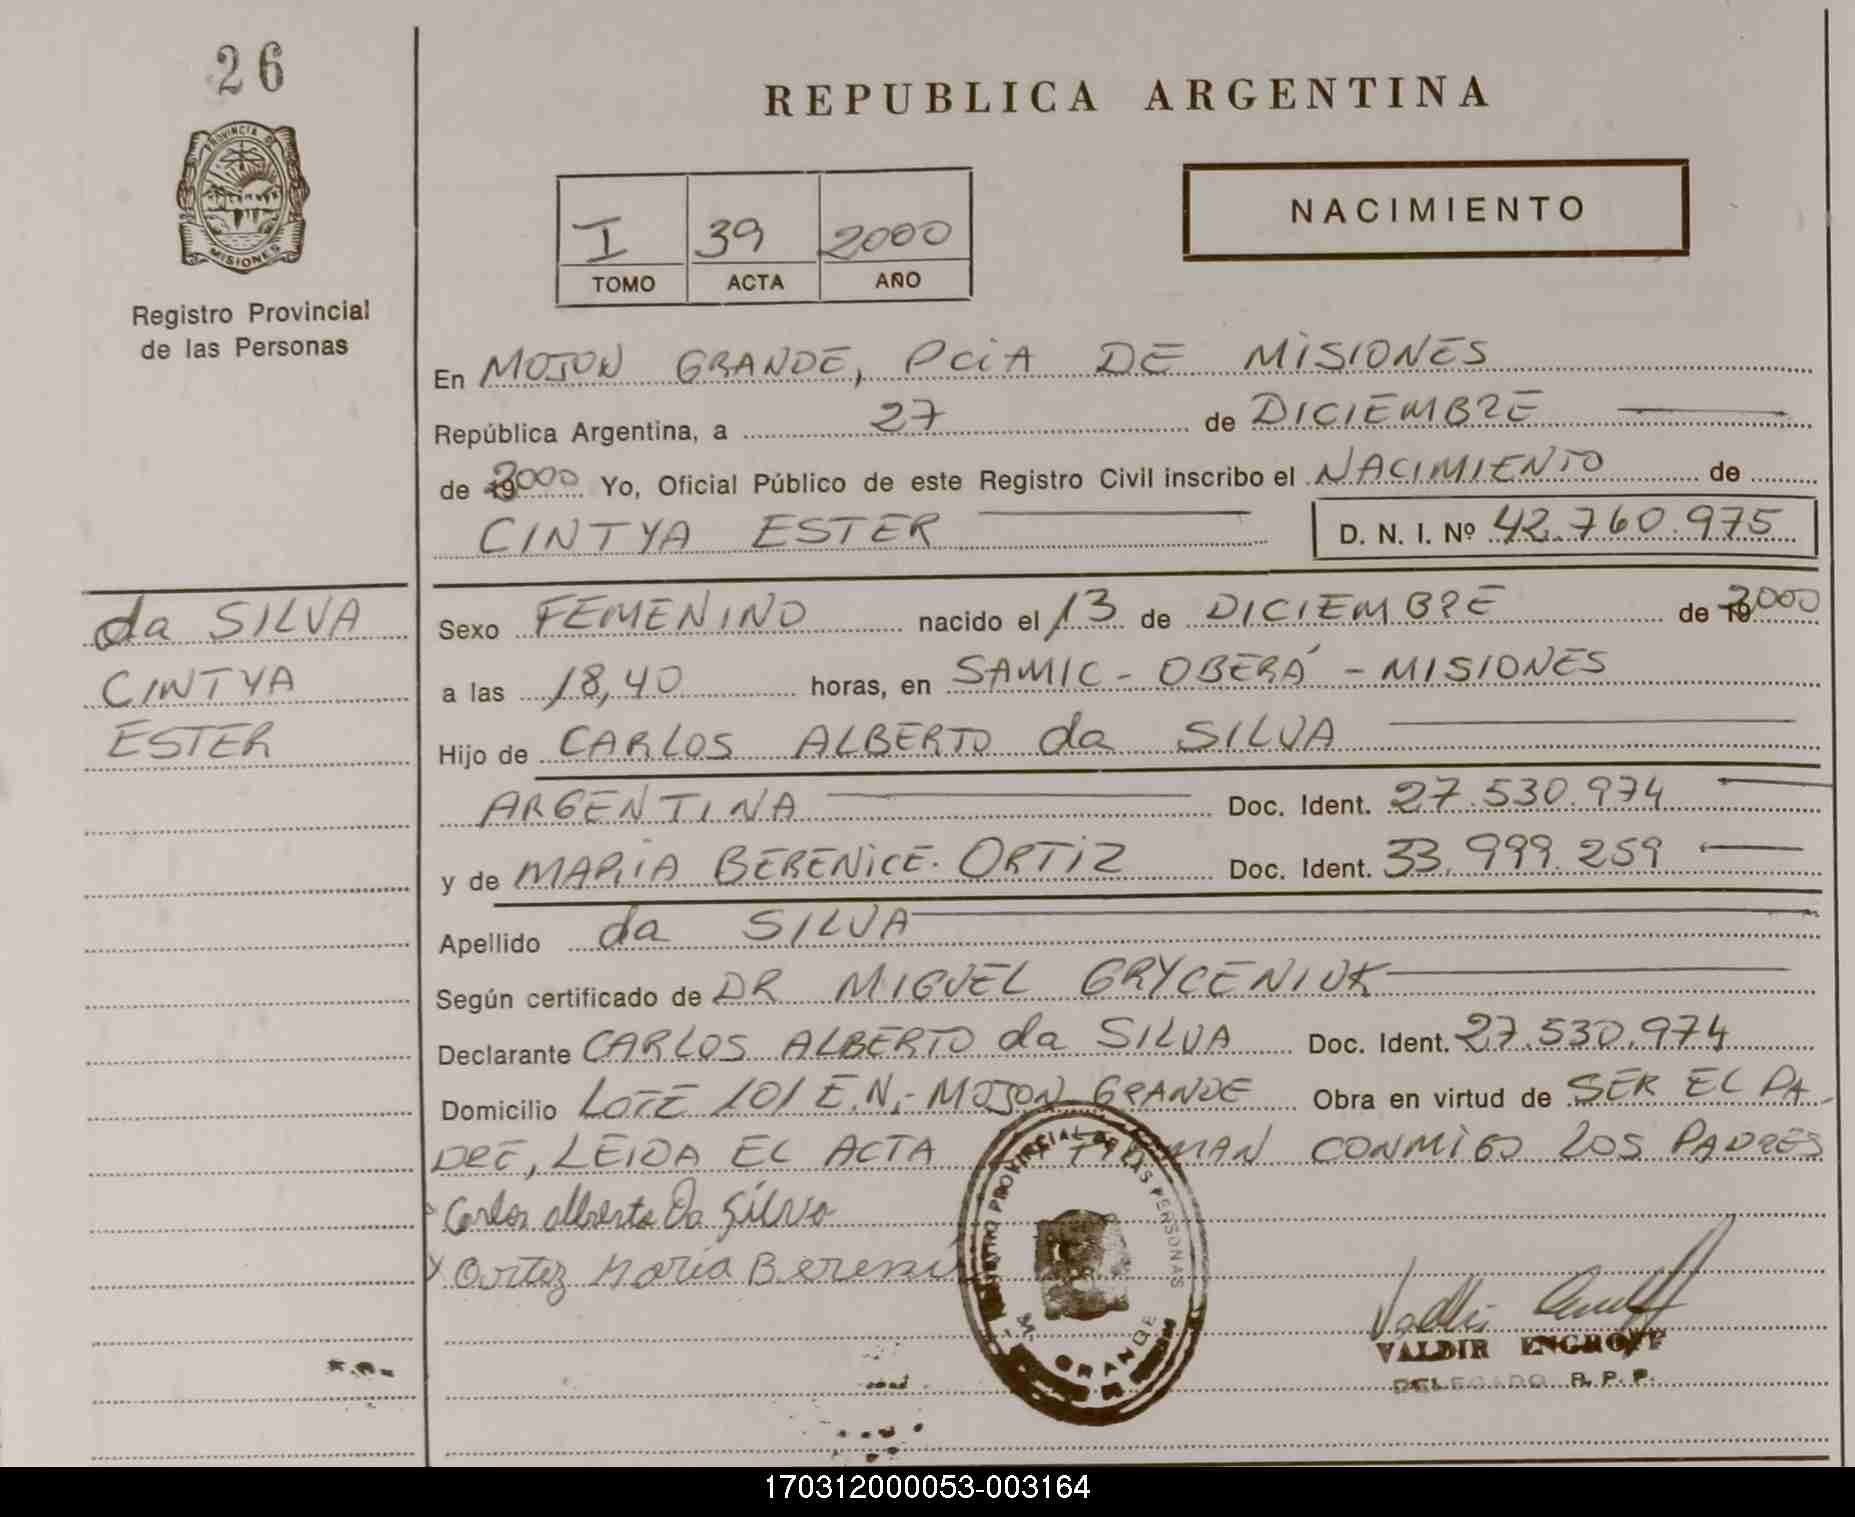 26
PROVINCIA DE
MISIONES
Registro Provincial
de las Personas
REPUBLICA ARGENTINA
I 39 2000
TOMO ACTA AÑO
NACIMIENTO
En MOJON GRANDE, PCiA DE MiSIONES
República Argentina, a 27 de DICIEMBRE
de 2000 Yo, Oficial Público de este Registro Civil inscribo el NACIMIENTO de
CINTYA ESTER D. N. I. Nº 42.760.975
da SILVA
CINTYA
ESTER
Sexo FEMENINO nacido el 13 de DICIEMBRE de 2000
a las 18,40 horas, en SAMIC - OBERÁ - MISIONES
Hijo de CARLOS ALBERTO da SILVA
ARGENTINA Doc. Ident. 27.530.974
y de MARIA BERENiCE ORTiZ Doc. Ident. 33.999.259
Apellido da SILVA
Según certificado de DR MIGUEL GRYCENIUK
Declarante CARLOS ALBERTO da SILVA Doc. Ident. 27.530.974
Domicilio LOTE 101 E.N.- MOJON GRANDE Obra en virtud de SER EL PA
DRE, LEIDA EL ACTA CONMIGO LOS PADRES
Carlos alberto Da Silva
Ortiz Maria Bereni
REGISTRO PROVINCIAL DE LAS PERSONAS
M. GRANDE
VALDIR ENGROFF
DELEGADO R. P. P.
170312000053-003164